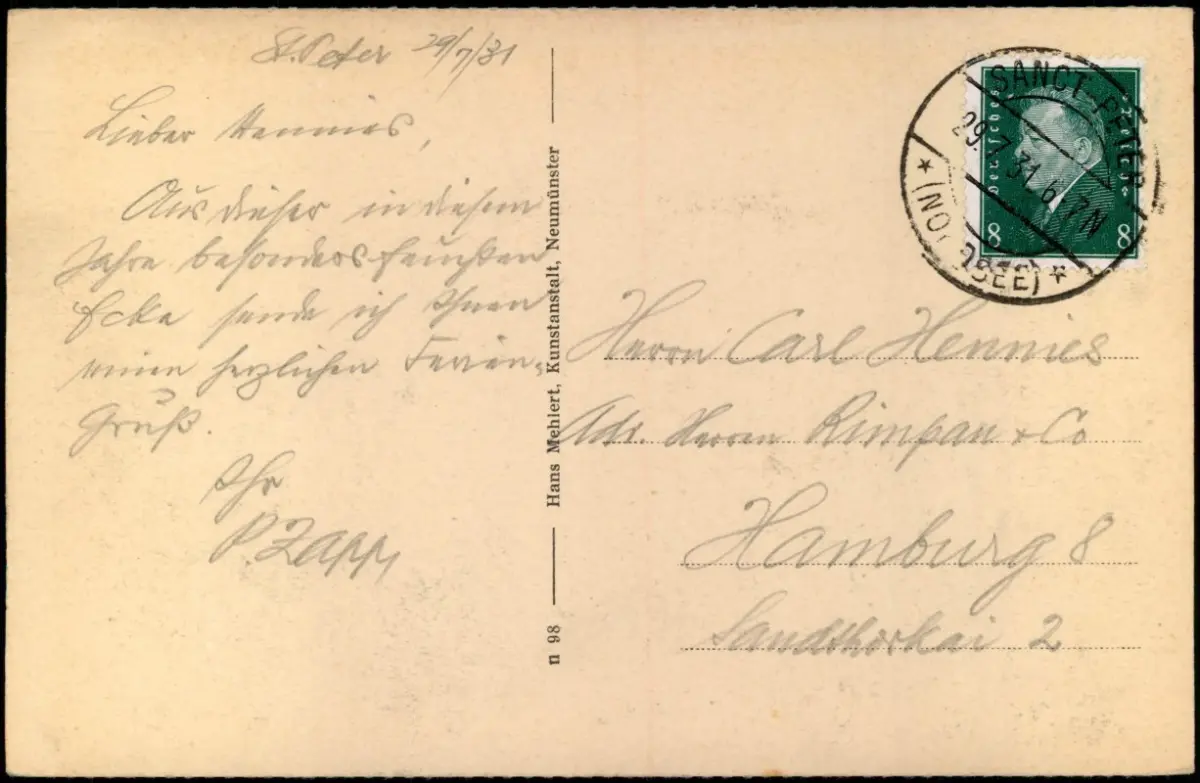 St. Peter 29/7/31
Lieber Hennies,
Aus dieser in diesem
Jahre besonders feuchten
Ecke sende ich Ihnen
einen herzlichen Ferien-
Gruß.
Ihr
P. Zapp
n 98 Hans Mehlert, Kunstanstalt, Neumünster
SANCT-PETER
29.7.31.6-7N
* (NORDSEE) *
Deutsches Reich
8 8
Herrn Carl Hennies
Adr. Herren Rimpau & Co
Hamburg 8
Sandthorkai 2